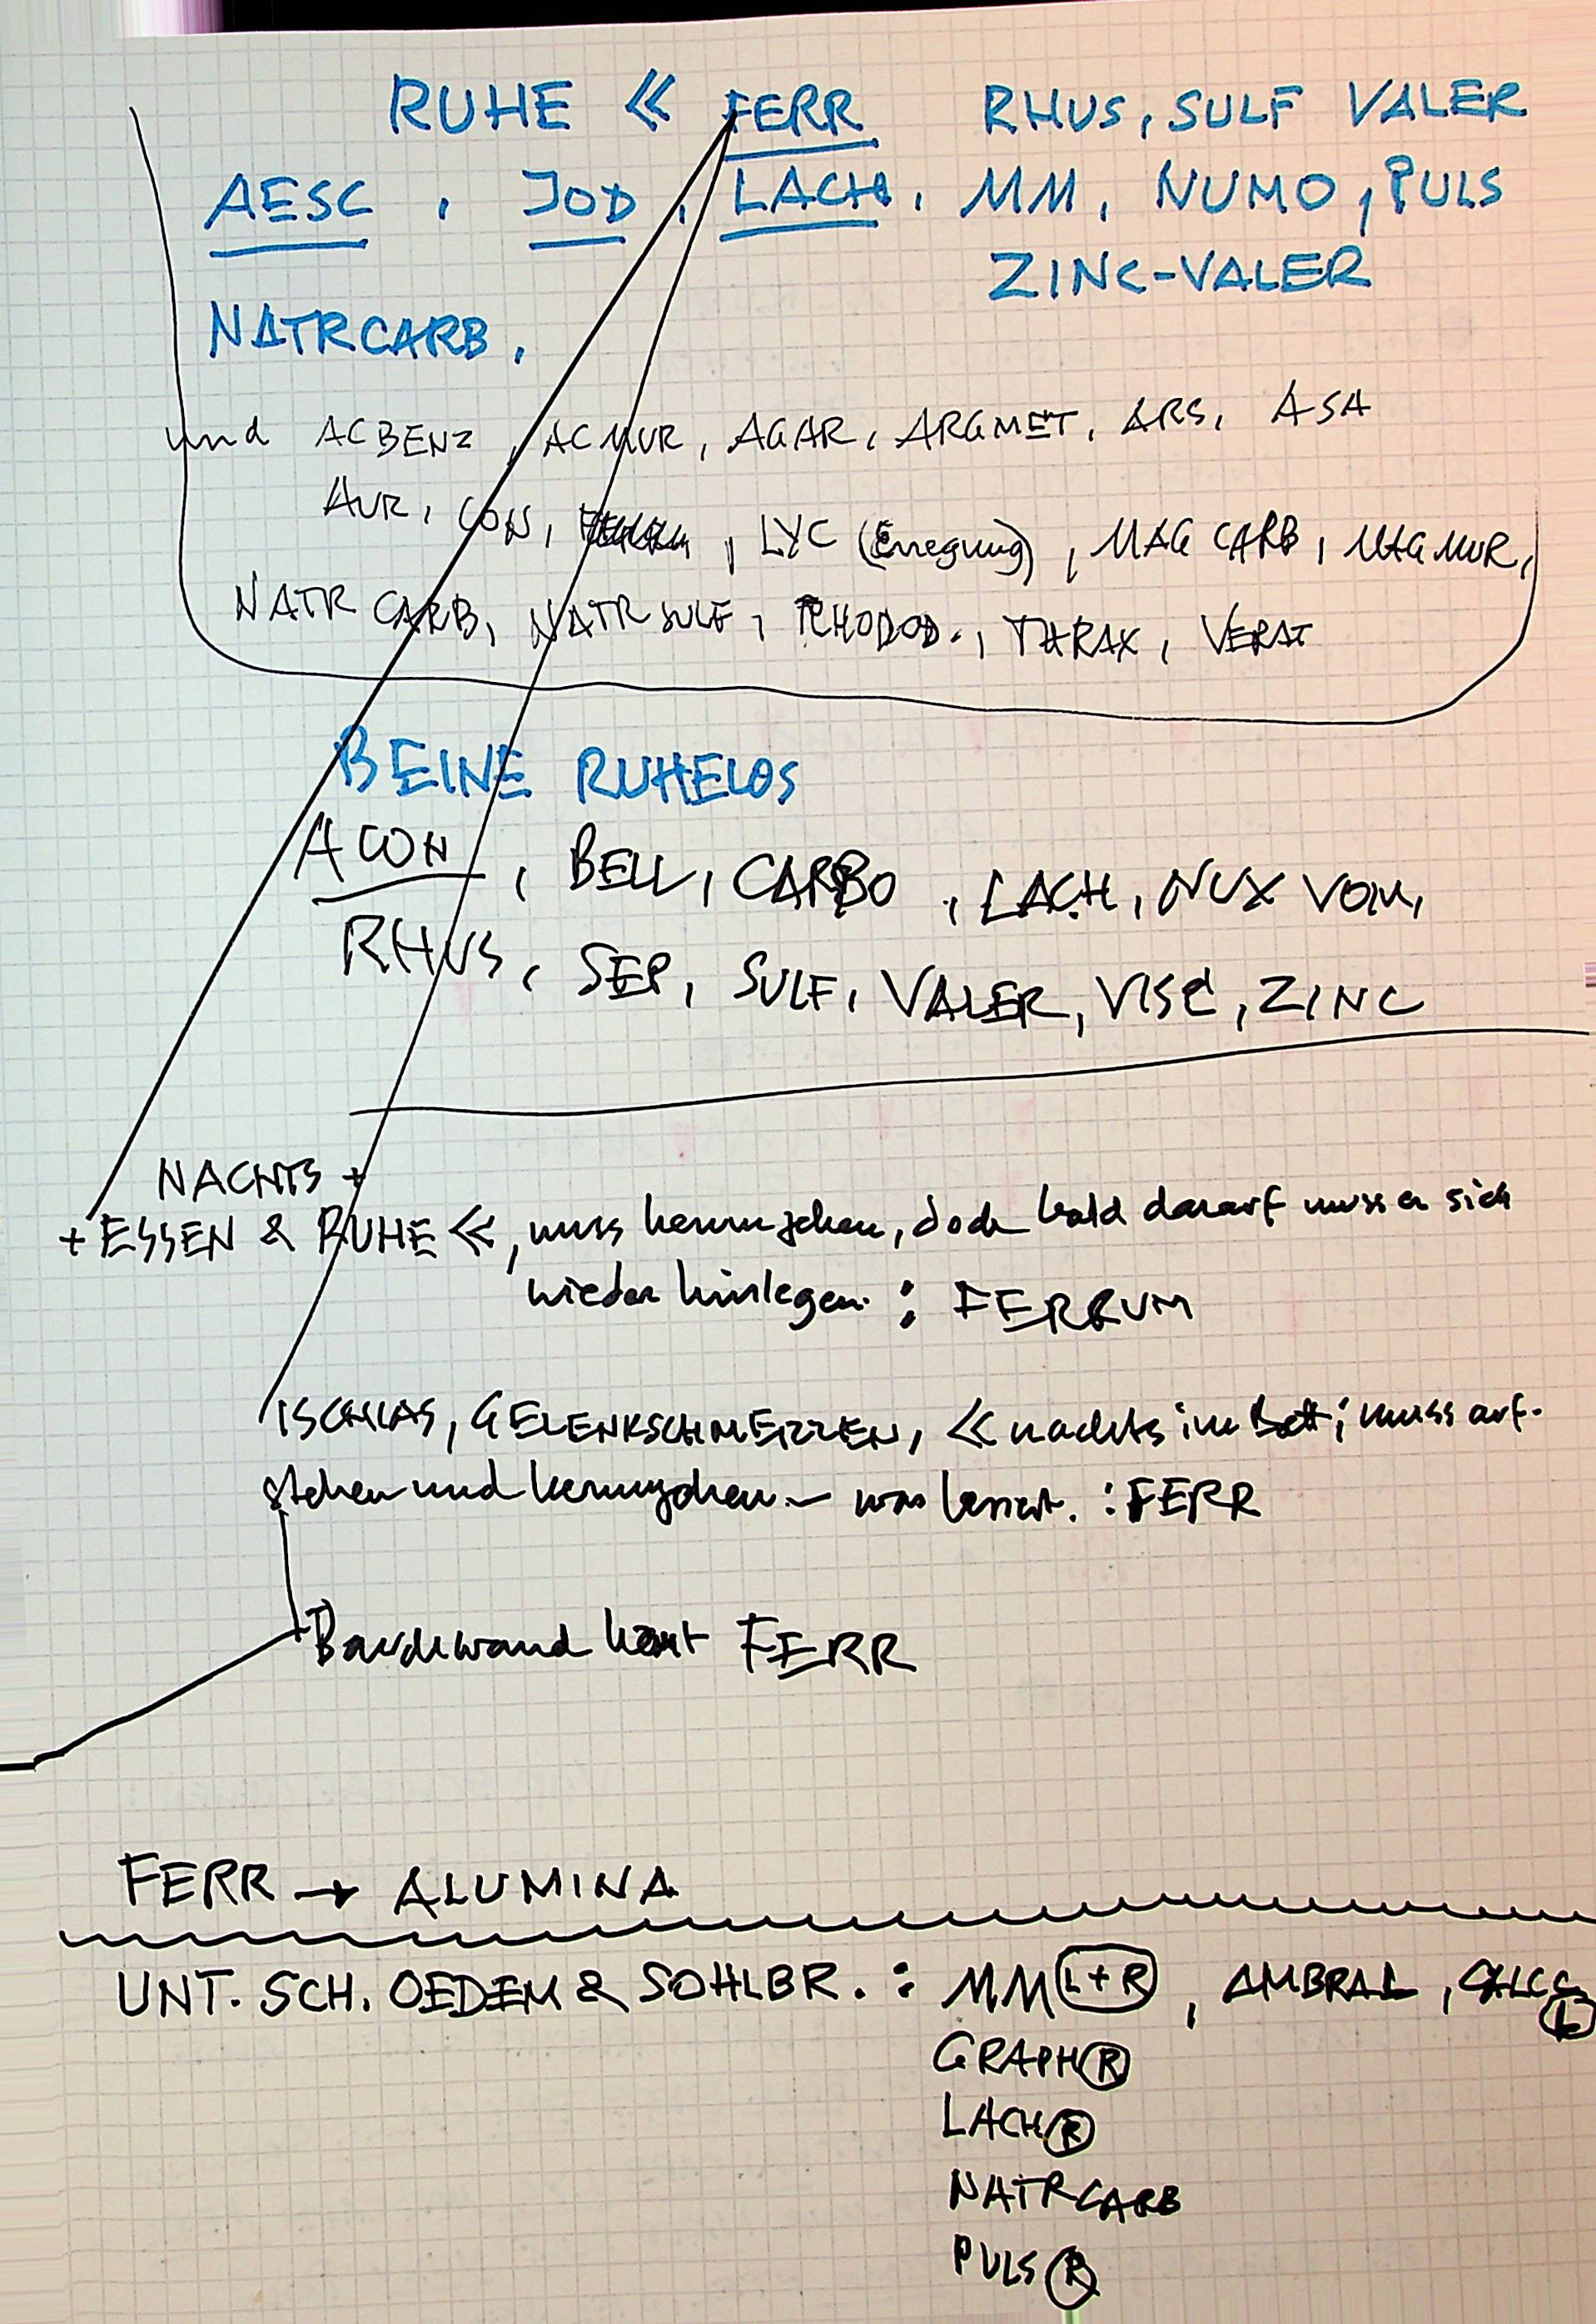 RUHE ≪ FERR RHUS, SULF VALER
AESC, JOD, LACH, MM, NUMO, PULS
ZINC-VALER
NATRCARB,
und ACBENZ, ACMUR, AGAR, ARGMET, ARS, ASA
AUR, CON, , LYC (Erregung), MAG CARB, MAG MUR,
NATR CARB, NATR SULF, RHODOD., THRAX, VERAT
BEINE RUHELOS
ACON, BELL, CARBO, LACH, NUX VOM,
RHUS, SEP, SULF, VALER, VISC, ZINC
NACHTS +
+ ESSEN & RUHE ≪, muss herumgehen, doch bald darauf muss er sich
wieder hinlegen: FERRUM
ISCHIAS, GELENKSCHMERZEN, ≪ nachts im Bett; muss auf-
stehen und herumgehen – was bessert. : FERR
Bauchwand hart FERR
FERR → ALUMINA
UNT. SCH. OEDEM & SOHLBR. : MM L+R, AMBRA L, CALC L
GRAPH R
LACH R
NATRCARB
PULS R